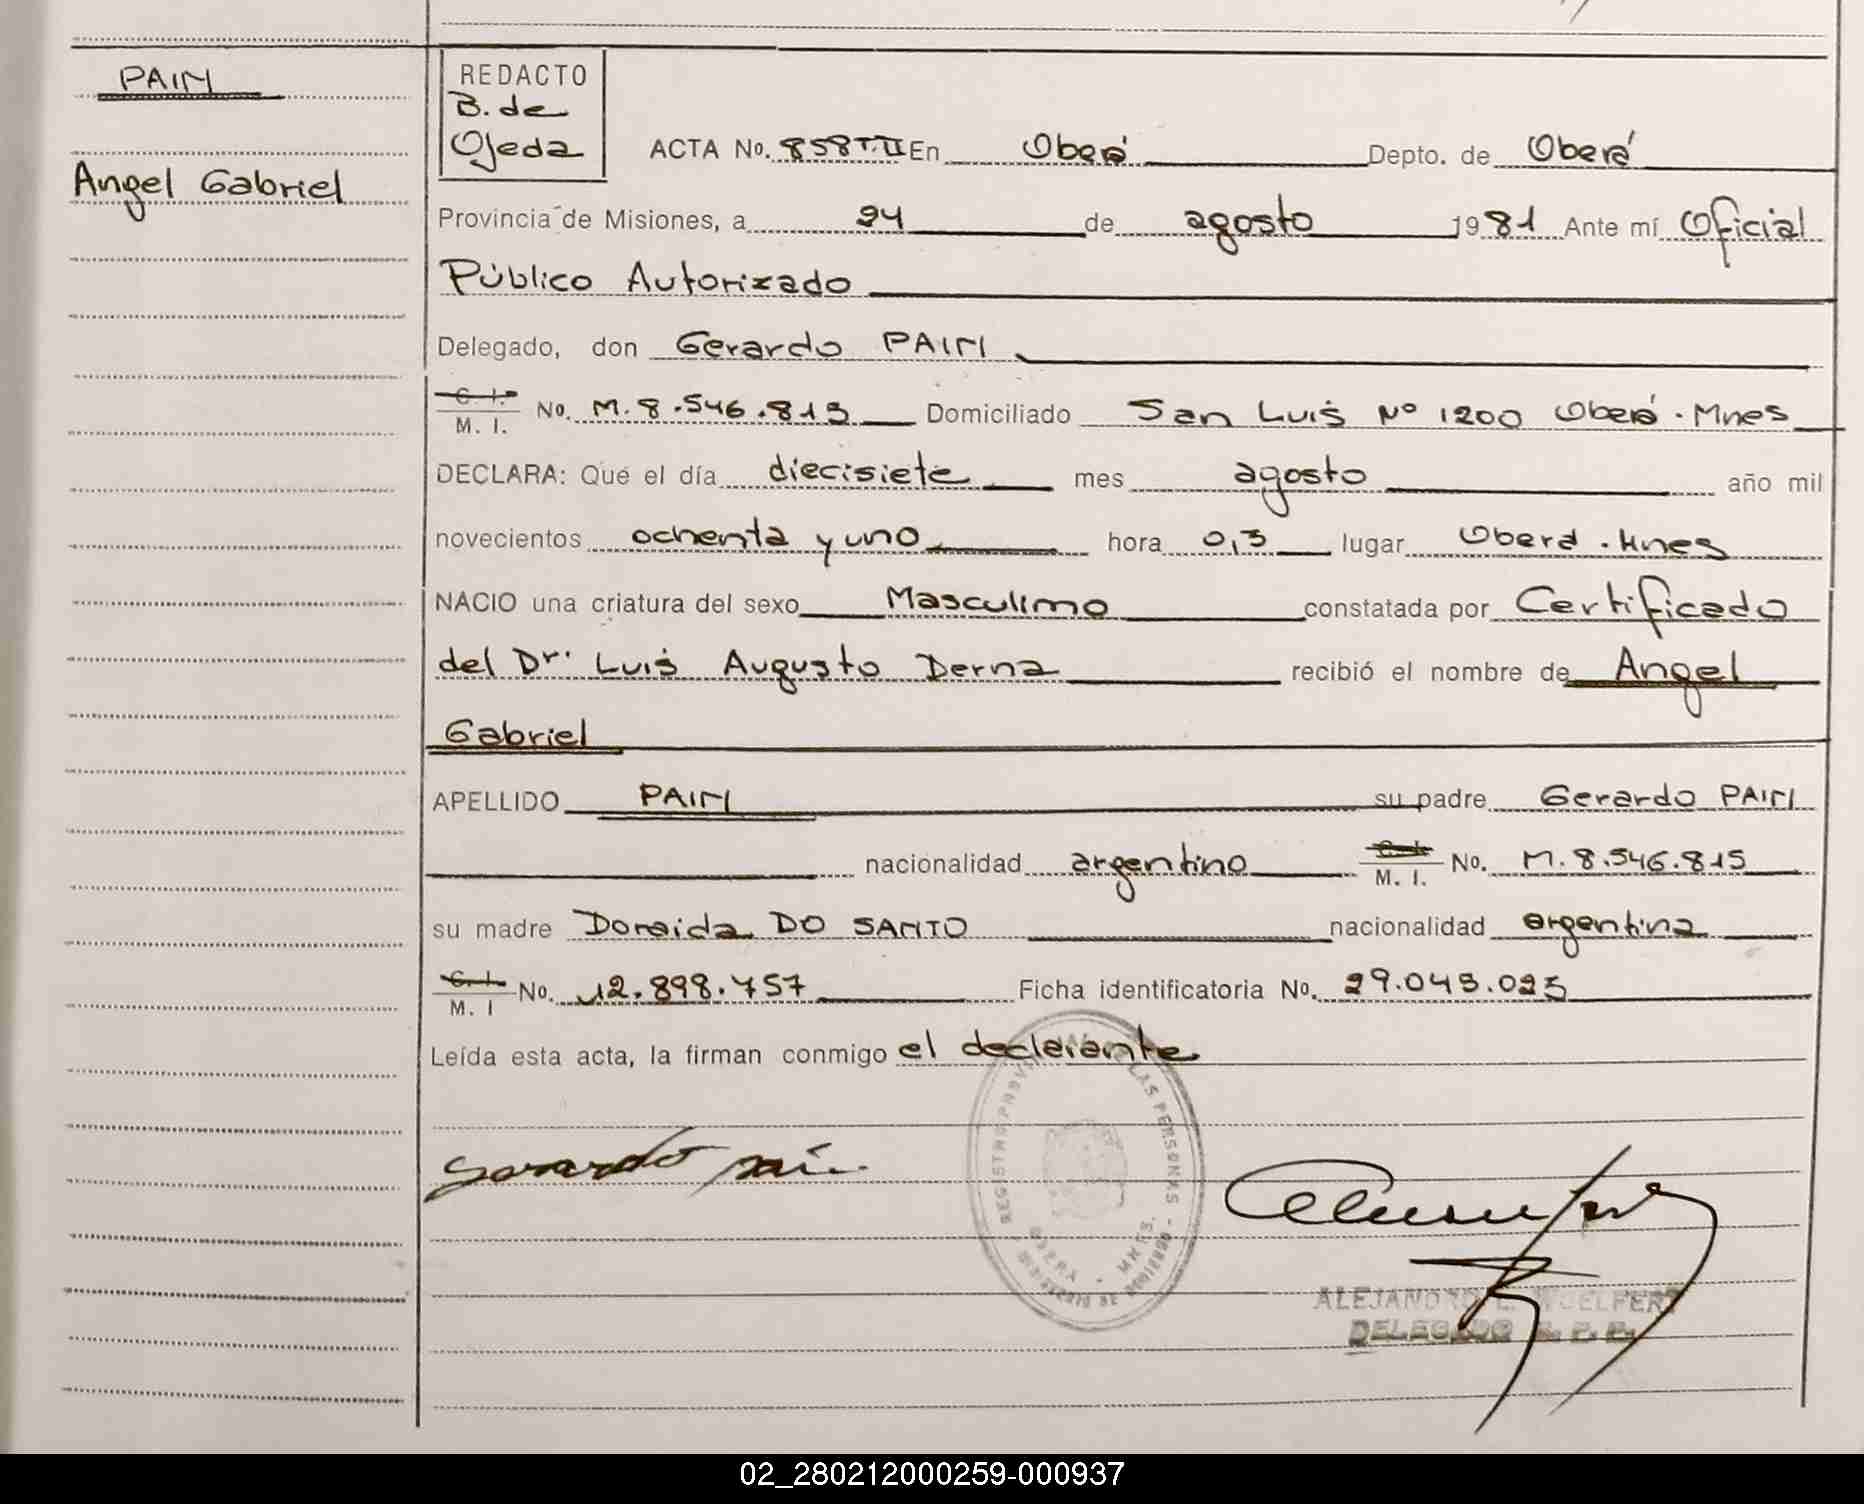 PAIM
Angel Gabriel
REDACTO
B. de
Ojeda
ACTA No. 858 T.II En Oberá Depto. de Oberá
Provincia de Misiones, a 24 de agosto 1981 Ante mí Oficial
Público Autorizado
Delegado, don Gerardo PAIM
C. I.
M. I. No. M. 8.546.815 Domiciliado San Luis Nº 1200 Oberá. Mnes
DECLARA: Que el día diecisiete mes agosto año mil
novecientos ochenta y uno hora 0,5 lugar Oberá. Mnes
NACIO una criatura del sexo Masculino constatada por Certificado
del Dr. Luis Augusto Derna recibió el nombre de Angel
Gabriel
APELLIDO PAIM su padre Gerardo PAIM
nacionalidad argentino C. I.
M. I. No. M. 8.546.815
su madre Doraida DO SANTO nacionalidad argentina
C. I.
M. I No. 12.898.757 Ficha identificatoria No. 29.043.025
Leída esta acta, la firman conmigo el declarante
Gerardo Paim
REGISTRO PROV. LAS PERSONAS
OBERA - MNES.
MINISTERIO DE GOBIERNO
ALEJANDRO L. WOELFERT
DELEGADO R. P. P.
02_280212000259-000937